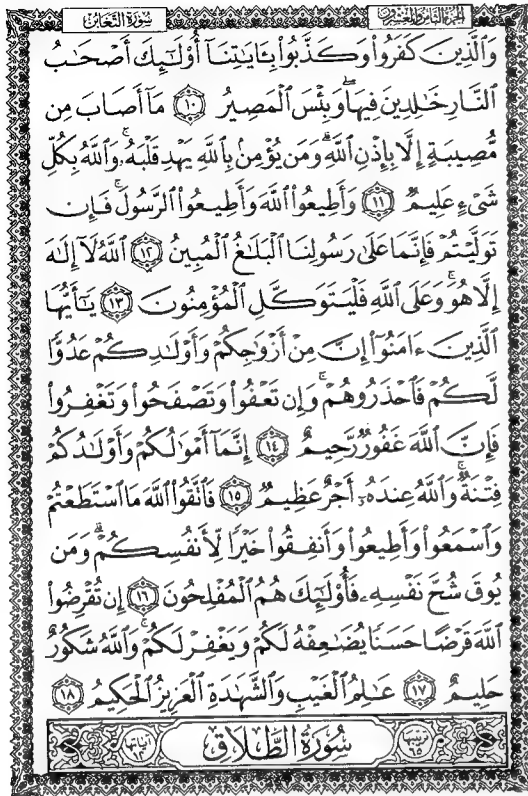 سُورَةُ التَّغَابُنِ
الجزء الثامن والعشرون
وَٱلَّذِينَ كَفَرُوا۟ وَكَذَّبُوا۟ بِـَٔايَـٰتِنَآ أُو۟لَـٰٓئِكَ أَصْحَـٰبُ
ٱلنَّارِ خَـٰلِدِينَ فِيهَا ۖ وَبِئْسَ ٱلْمَصِيرُ ١٠ مَآ أَصَابَ مِن
مُّصِيبَةٍ إِلَّا بِإِذْنِ ٱللَّهِ ۗ وَمَن يُؤْمِنۢ بِٱللَّهِ يَهْدِ قَلْبَهُۥ ۚ وَٱللَّهُ بِكُلِّ
شَىْءٍ عَلِيمٌ ١١ وَأَطِيعُوا۟ ٱللَّهَ وَأَطِيعُوا۟ ٱلرَّسُولَ ۚ فَإِن
تَوَلَّيْتُمْ فَإِنَّمَا عَلَىٰ رَسُولِنَا ٱلْبَلَـٰغُ ٱلْمُبِينُ ١٢ ٱللَّهُ لَآ إِلَـٰهَ
إِلَّا هُوَ ۚ وَعَلَى ٱللَّهِ فَلْيَتَوَكَّلِ ٱلْمُؤْمِنُونَ ١٣ يَـٰٓأَيُّهَا
ٱلَّذِينَ ءَامَنُوٓا۟ إِنَّ مِنْ أَزْوَٰجِكُمْ وَأَوْلَـٰدِكُمْ عَدُوًّا
لَّكُمْ فَٱحْذَرُوهُمْ ۚ وَإِن تَعْفُوا۟ وَتَصْفَحُوا۟ وَتَغْفِرُوا۟
فَإِنَّ ٱللَّهَ غَفُورٌ رَّحِيمٌ ١٤ إِنَّمَآ أَمْوَٰلُكُمْ وَأَوْلَـٰدُكُمْ
فِتْنَةٌ ۚ وَٱللَّهُ عِندَهُۥٓ أَجْرٌ عَظِيمٌ ١٥ فَٱتَّقُوا۟ ٱللَّهَ مَا ٱسْتَطَعْتُمْ
وَٱسْمَعُوا۟ وَأَطِيعُوا۟ وَأَنفِقُوا۟ خَيْرًا لِّأَنفُسِكُمْ ۗ وَمَن
يُوقَ شُحَّ نَفْسِهِۦ فَأُو۟لَـٰٓئِكَ هُمُ ٱلْمُفْلِحُونَ ١٦ إِن تُقْرِضُوا۟
ٱللَّهَ قَرْضًا حَسَنًا يُضَـٰعِفْهُ لَكُمْ وَيَغْفِرْ لَكُمْ ۚ وَٱللَّهُ شَكُورٌ
حَلِيمٌ ١٧ عَـٰلِمُ ٱلْغَيْبِ وَٱلشَّهَـٰدَةِ ٱلْعَزِيزُ ٱلْحَكِيمُ ١٨
ترتيبها ٦٥ سُورَةُ الطَّلَاقِ آياتها ١٢